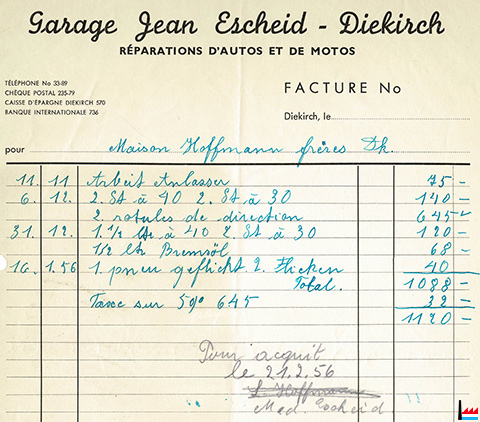 Garage Jean Escheid - Diekirch
RÉPARATIONS D'AUTOS ET DE MOTOS
TÉLÉPHONE No 33-89
CHÈQUE POSTAL 235-79
CAISSE D'ÉPARGNE DIEKIRCH 570
BANQUE INTERNATIONALE 736
FACTURE No
Diekirch, le
pour Maison Hoffmann frères Dk.
11. 11 Arbeit Anlasser 75 -
6. 12. 2 St à 40 2 St à 30 140 -
2 rotules de direction 645 -
31. 12. 1 1/2 St à 40 2 St à 30 120 -
1/2 ltr Bremsöl 68 -
16. 1.56 1 pneu geflickt 2 Flicken 40
Total. 1088 -
Taxe sur 5% 645 32 -
1120 -
Pour acquit
le 21.2.56
Hoffmann
Med. Escheid.